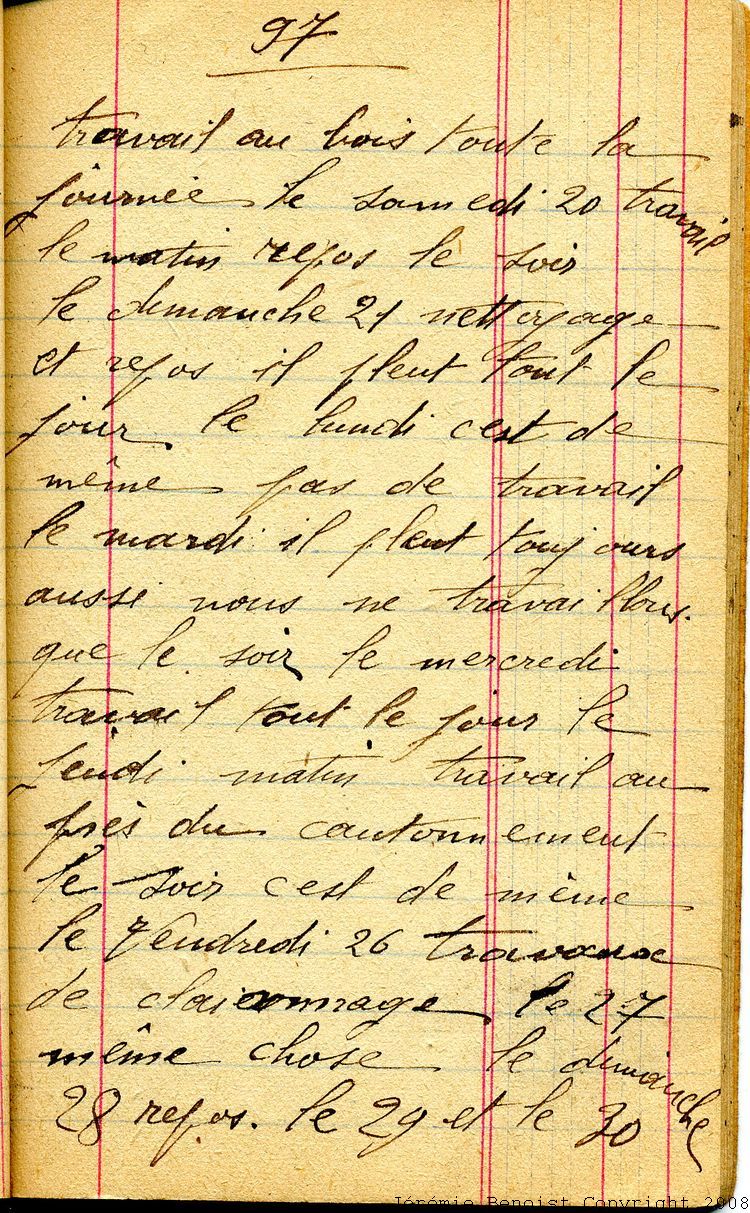 97
travail au bois toute la
journée le samedi 20 travail
le matin repos le soir
le dimanche 21 nettoyage
et repos il pleut tout le
jour le lundi c'est de
même pas de travail
le mardi il pleut toujours
aussi nous ne travaillons.
que le soir le mercredi
travail tout le jour le
jeudi matin travail au
près du cantonnement
le soir c'est de même
le vendredi 26 travaux
de claionnage le 27
même chose le dimanche
28 repos. le 29 et le 30
Jérémie Benoist Copyright 2008